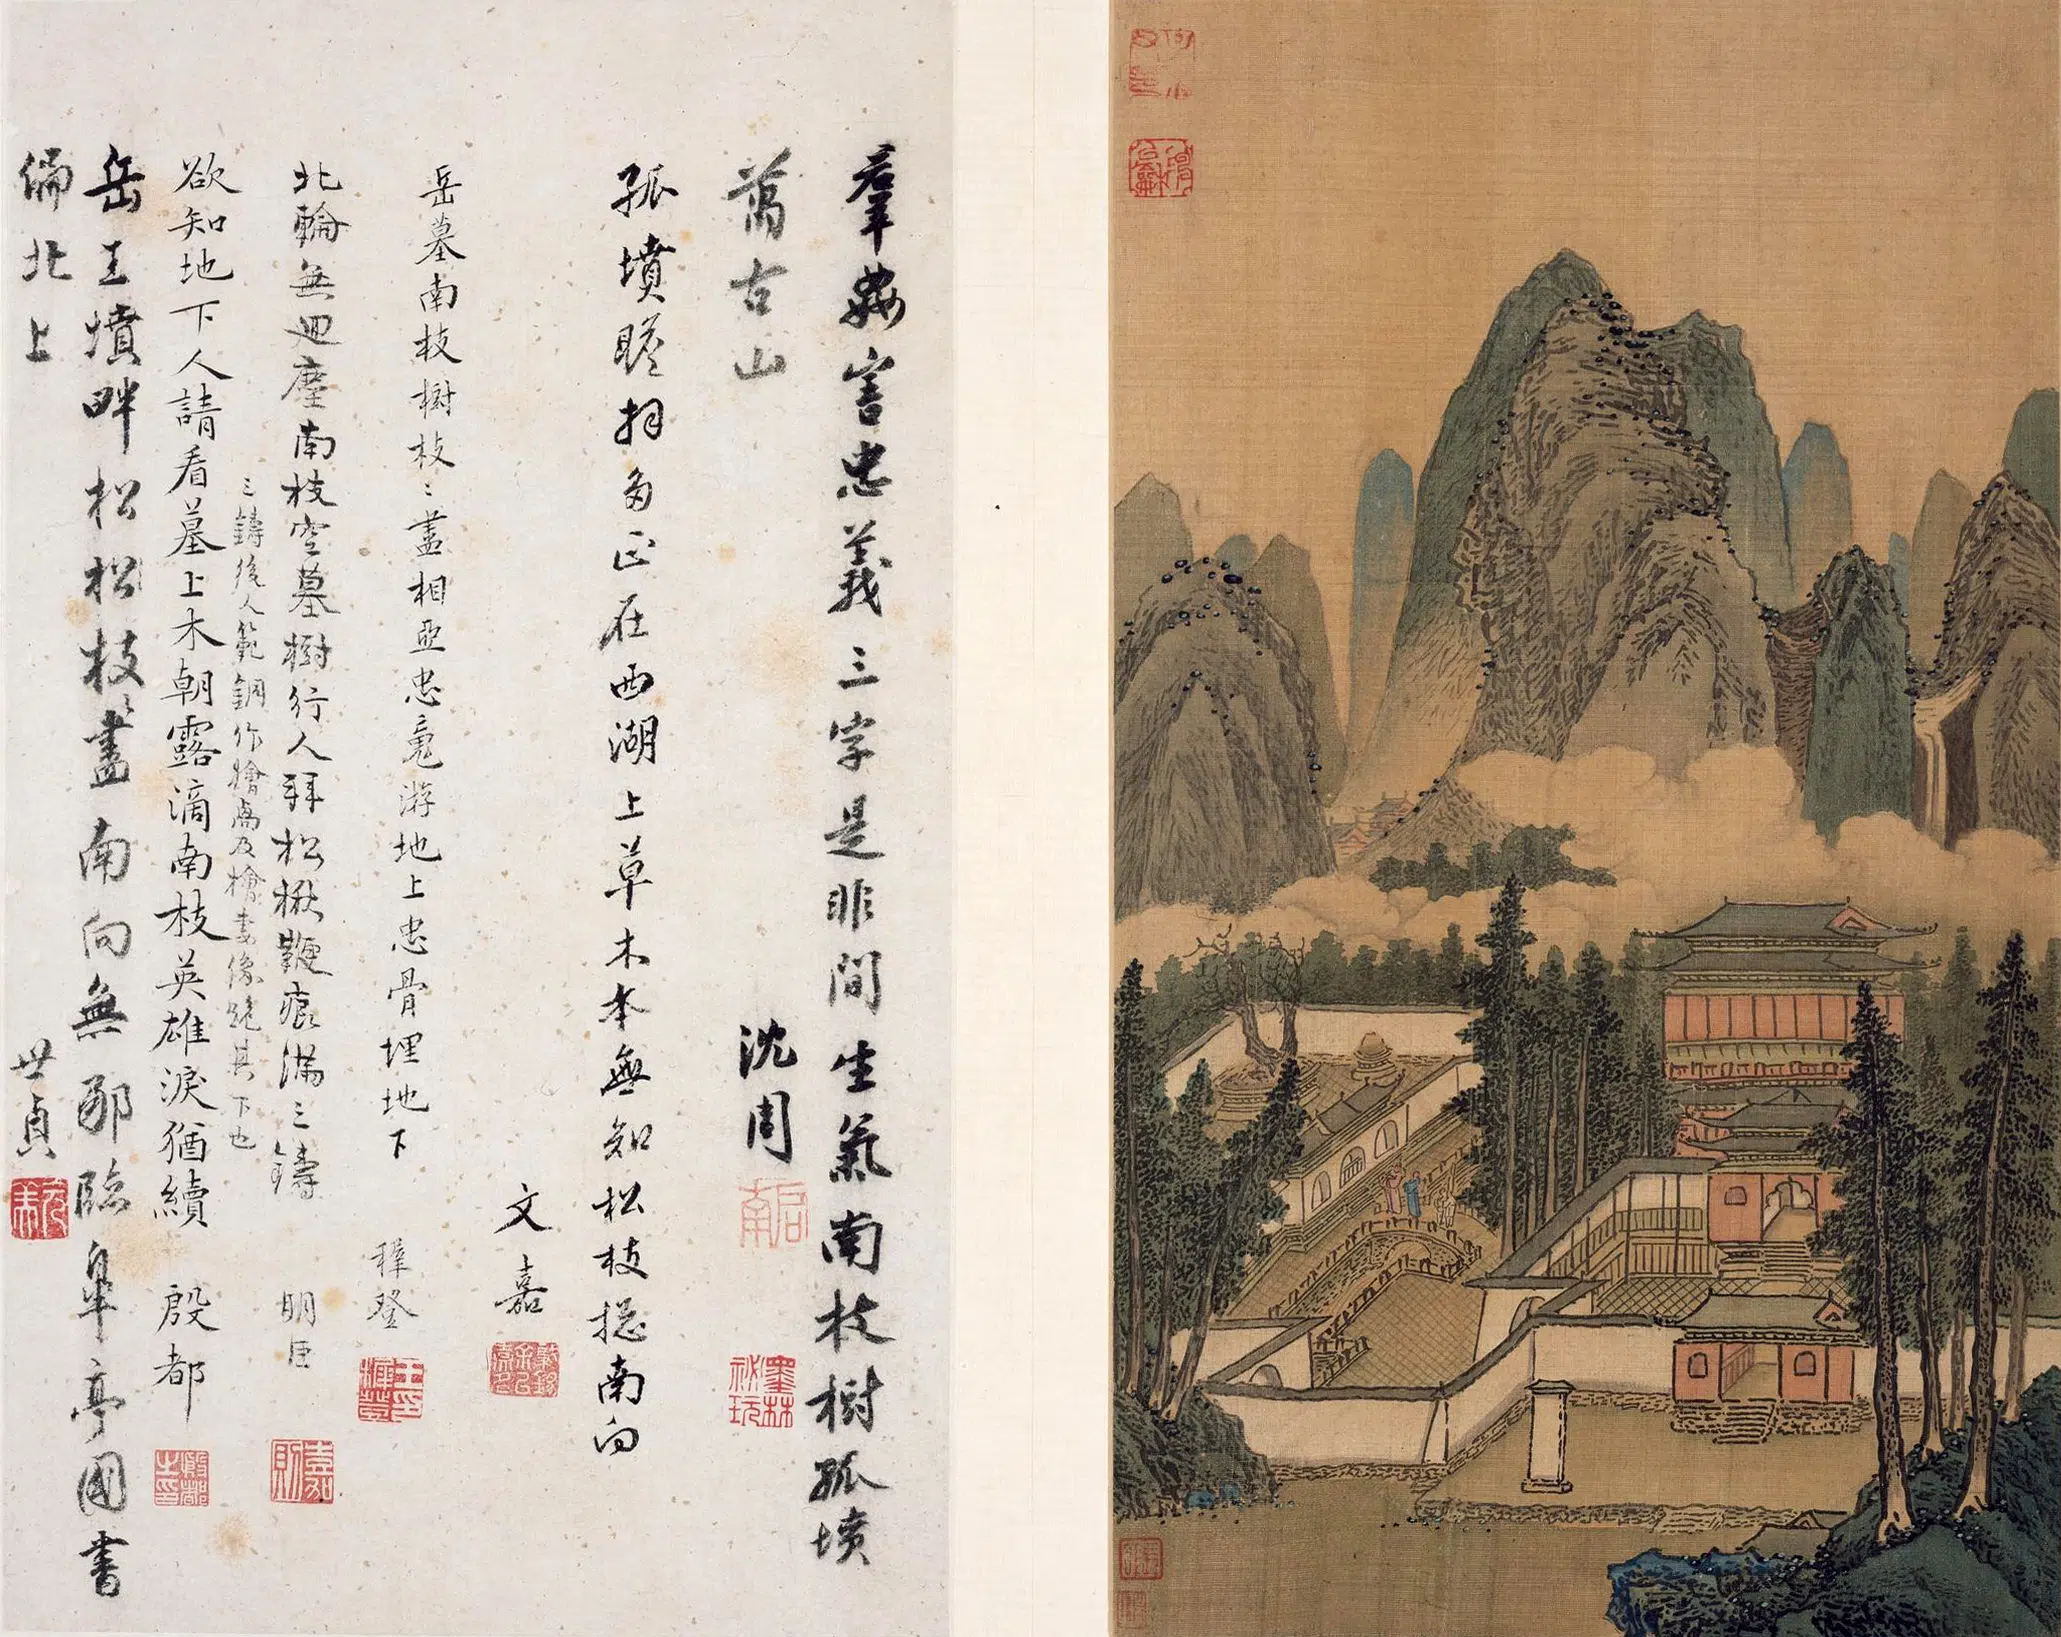 羣姦害忠義三字是非間生氣南枝樹孤墳
萬古山
沈周
啟南
墨林秘玩
孤墳瞻拜多正在西湖上草木本無知松枝総南向
文嘉
岳墓南枝樹枝〻盡相亞忠魂游地上忠骨埋地下
穉登
王穉登印
北輪無迴塵南枝空墓樹行人拜松楸鞭痕滿三鑄
明臣
嘉則
三鑄後人範銅作檜卨及檜妻像跪其下也
欲知地下人請看墓上木朝露滴南枝英雄淚猶續
殷都
殷都之印
岳王墳畔松松枝〻盡南向無那臨皐亭圖書
偏北上
世貞
元美